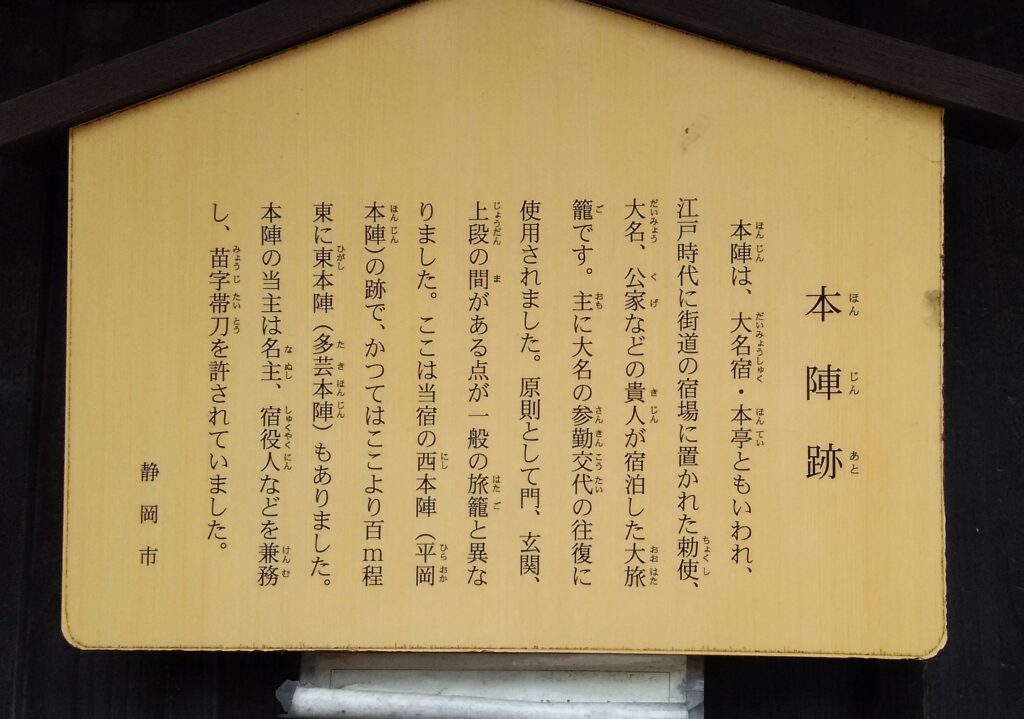 本陣跡
本陣は、大名宿・本亭ともいわれ、
江戸時代に街道の宿場に置かれた勅使、
大名、公家などの貴人が宿泊した大旅
籠です。主に大名の参勤交代の往復に
使用されました。原則として門、玄関、
上段の間がある点が一般の旅籠と異な
りました。ここは当宿の西本陣（平岡
本陣）の跡で、かつてはここより百ｍ程
東に東本陣（多芸本陣）もありました。
本陣の当主は名主、宿役人などを兼務
し、苗字帯刀を許されていました。
静岡市